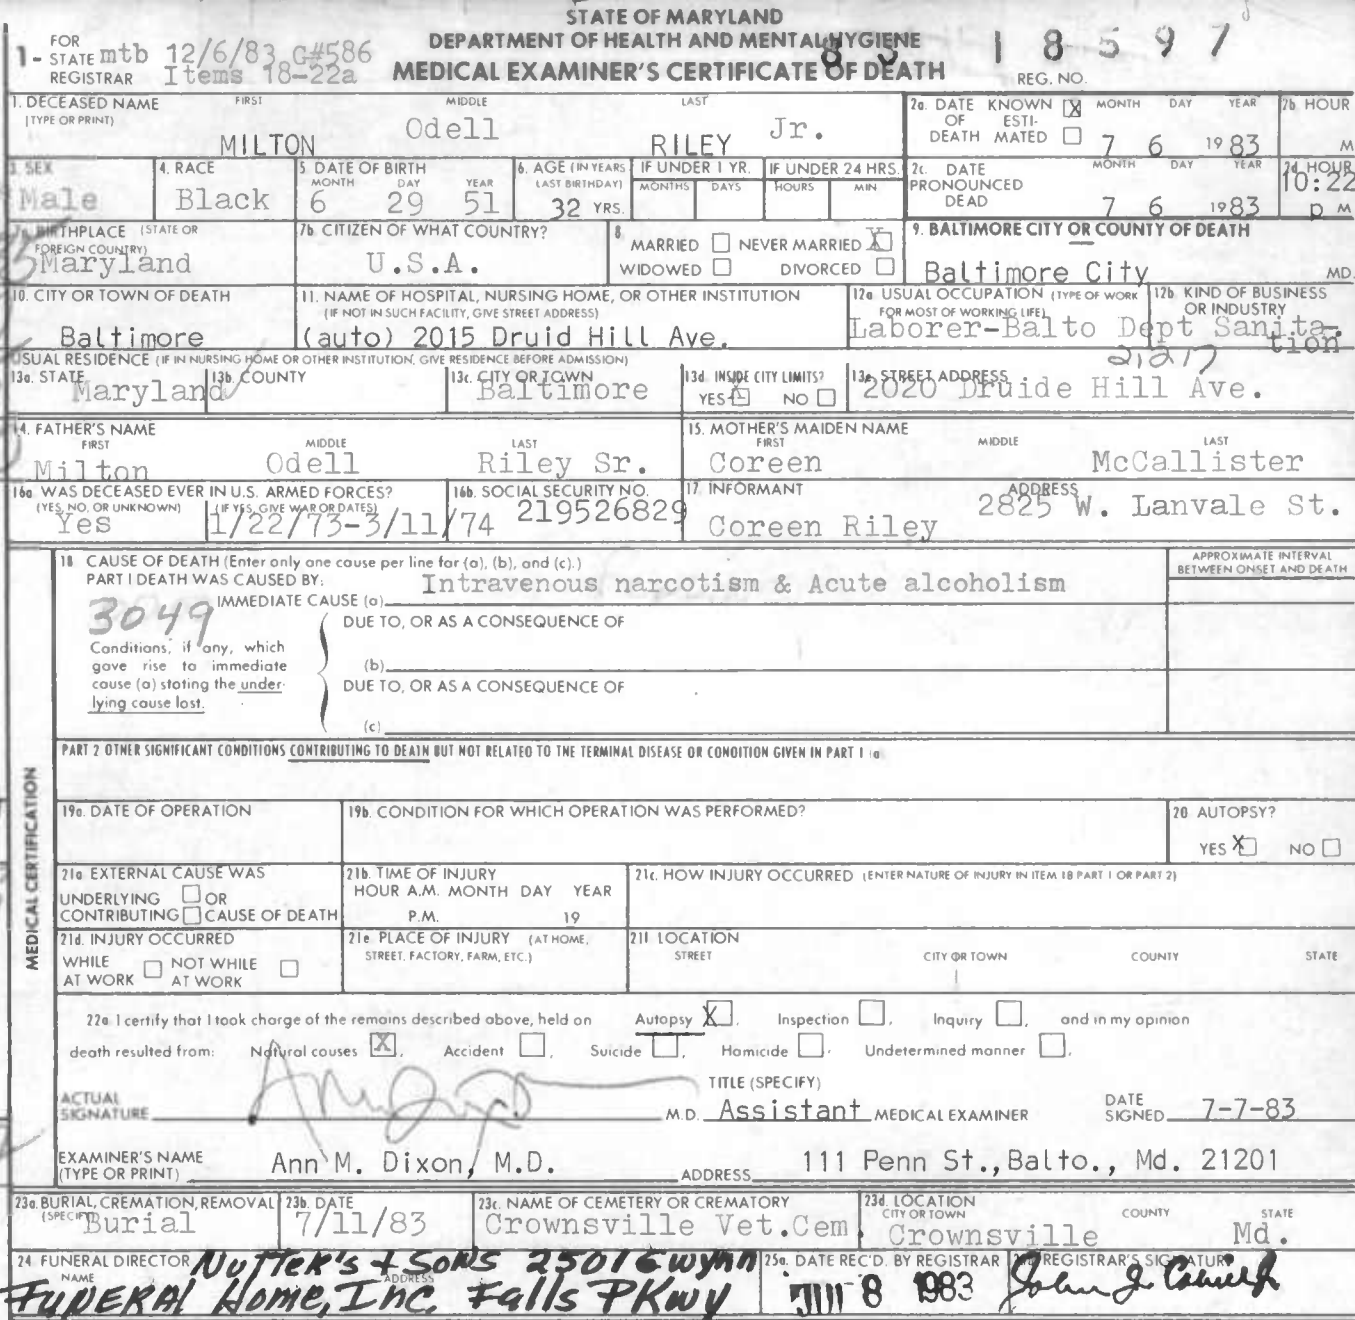 STATE OF MARYLAND
DEPARTMENT OF HEALTH AND MENTAL HYGIENE
MEDICAL EXAMINER'S CERTIFICATE OF DEATH
1- FOR STATE REGISTRAR mtb 12/6/83 G#586
Items 18-22a
83 18597
REG. NO.
1. DECEASED NAME (TYPE OR PRINT) FIRST MIDDLE LAST
MILTON Odell RILEY Jr.
2a. DATE OF DEATH KNOWN X ESTIMATED MONTH DAY YEAR
7 6 1983
2b. HOUR M
3. SEX
Male
4. RACE
Black
5. DATE OF BIRTH MONTH DAY YEAR
6 29 51
6. AGE (IN YEARS LAST BIRTHDAY)
32 YRS.
IF UNDER 1 YR. MONTHS DAYS
IF UNDER 24 HRS. HOURS MIN
2c. DATE PRONOUNCED DEAD MONTH DAY YEAR
7 6 1983
2d. HOUR
10:22 p M
7a. BIRTHPLACE (STATE OR FOREIGN COUNTRY)
Maryland
7b. CITIZEN OF WHAT COUNTRY?
U.S.A.
8. MARRIED NEVER MARRIED X
WIDOWED DIVORCED
9. BALTIMORE CITY OR COUNTY OF DEATH
Baltimore City MD.
10. CITY OR TOWN OF DEATH
Baltimore
11. NAME OF HOSPITAL, NURSING HOME, OR OTHER INSTITUTION
(IF NOT IN SUCH FACILITY, GIVE STREET ADDRESS)
(auto) 2015 Druid Hill Ave.
12a. USUAL OCCUPATION (TYPE OF WORK FOR MOST OF WORKING LIFE)
12b. KIND OF BUSINESS OR INDUSTRY
Laborer-Balto Dept Sanita-
tion
USUAL RESIDENCE (IF IN NURSING HOME OR OTHER INSTITUTION, GIVE RESIDENCE BEFORE ADMISSION)
13a. STATE
Maryland
13b. COUNTY
13c. CITY OR TOWN
Baltimore
13d. INSIDE CITY LIMITS?
YES X NO
13e. STREET ADDRESS
21217
2020 Druide Hill Ave.
14. FATHER'S NAME FIRST MIDDLE LAST
Milton Odell Riley Sr.
15. MOTHER'S MAIDEN NAME FIRST MIDDLE LAST
Coreen McCallister
16a. WAS DECEASED EVER IN U.S. ARMED FORCES?
(YES, NO, OR UNKNOWN) (IF YES, GIVE WAR OR DATES)
Yes 1/22/73-3/11/74
16b. SOCIAL SECURITY NO.
219526829
17. INFORMANT ADDRESS
Coreen Riley 2825 W. Lanvale St.
MEDICAL CERTIFICATION
18. CAUSE OF DEATH (Enter only one cause per line for (a), (b), and (c).)
APPROXIMATE INTERVAL BETWEEN ONSET AND DEATH
PART I DEATH WAS CAUSED BY:
IMMEDIATE CAUSE (a) Intravenous narcotism & Acute alcoholism
3049
DUE TO, OR AS A CONSEQUENCE OF
Conditions, if any, which
gave rise to immediate
cause (a) stating the under-
lying cause last.
(b)
DUE TO, OR AS A CONSEQUENCE OF
(c)
PART 2 OTHER SIGNIFICANT CONDITIONS CONTRIBUTING TO DEATH BUT NOT RELATED TO THE TERMINAL DISEASE OR CONDITION GIVEN IN PART 1 (a)
19a. DATE OF OPERATION
19b. CONDITION FOR WHICH OPERATION WAS PERFORMED?
20. AUTOPSY?
YES X NO
21a. EXTERNAL CAUSE WAS
UNDERLYING OR
CONTRIBUTING CAUSE OF DEATH
21b. TIME OF INJURY
HOUR A.M. MONTH DAY YEAR
P.M. 19
21c. HOW INJURY OCCURRED (ENTER NATURE OF INJURY IN ITEM 18 PART 1 OR PART 2)
21d. INJURY OCCURRED
WHILE AT WORK NOT WHILE AT WORK
21e. PLACE OF INJURY (AT HOME, STREET, FACTORY, FARM, ETC.)
21f. LOCATION
STREET CITY OR TOWN COUNTY STATE
22a. I certify that I took charge of the remains described above, held on Autopsy X, Inspection, Inquiry, and in my opinion
death resulted from: Natural causes X, Accident, Suicide, Homicide, Undetermined manner.
ACTUAL SIGNATURE M.D.
TITLE (SPECIFY)
Assistant MEDICAL EXAMINER
DATE SIGNED 7-7-83
EXAMINER'S NAME (TYPE OR PRINT) Ann M. Dixon, M.D.
ADDRESS 111 Penn St., Balto., Md. 21201
23a. BURIAL, CREMATION, REMOVAL (SPECIFY)
Burial
23b. DATE
7/11/83
23c. NAME OF CEMETERY OR CREMATORY
Crownsville Vet.Cem
23d. LOCATION CITY OR TOWN COUNTY STATE
Crownsville Md.
24. FUNERAL DIRECTOR NAME ADDRESS
Nutter's + Sons 2501 Gwynn
Funeral Home, Inc. Falls PKwy
25a. DATE REC'D. BY REGISTRAR
JUL 8 1983
REGISTRAR'S SIGNATURE